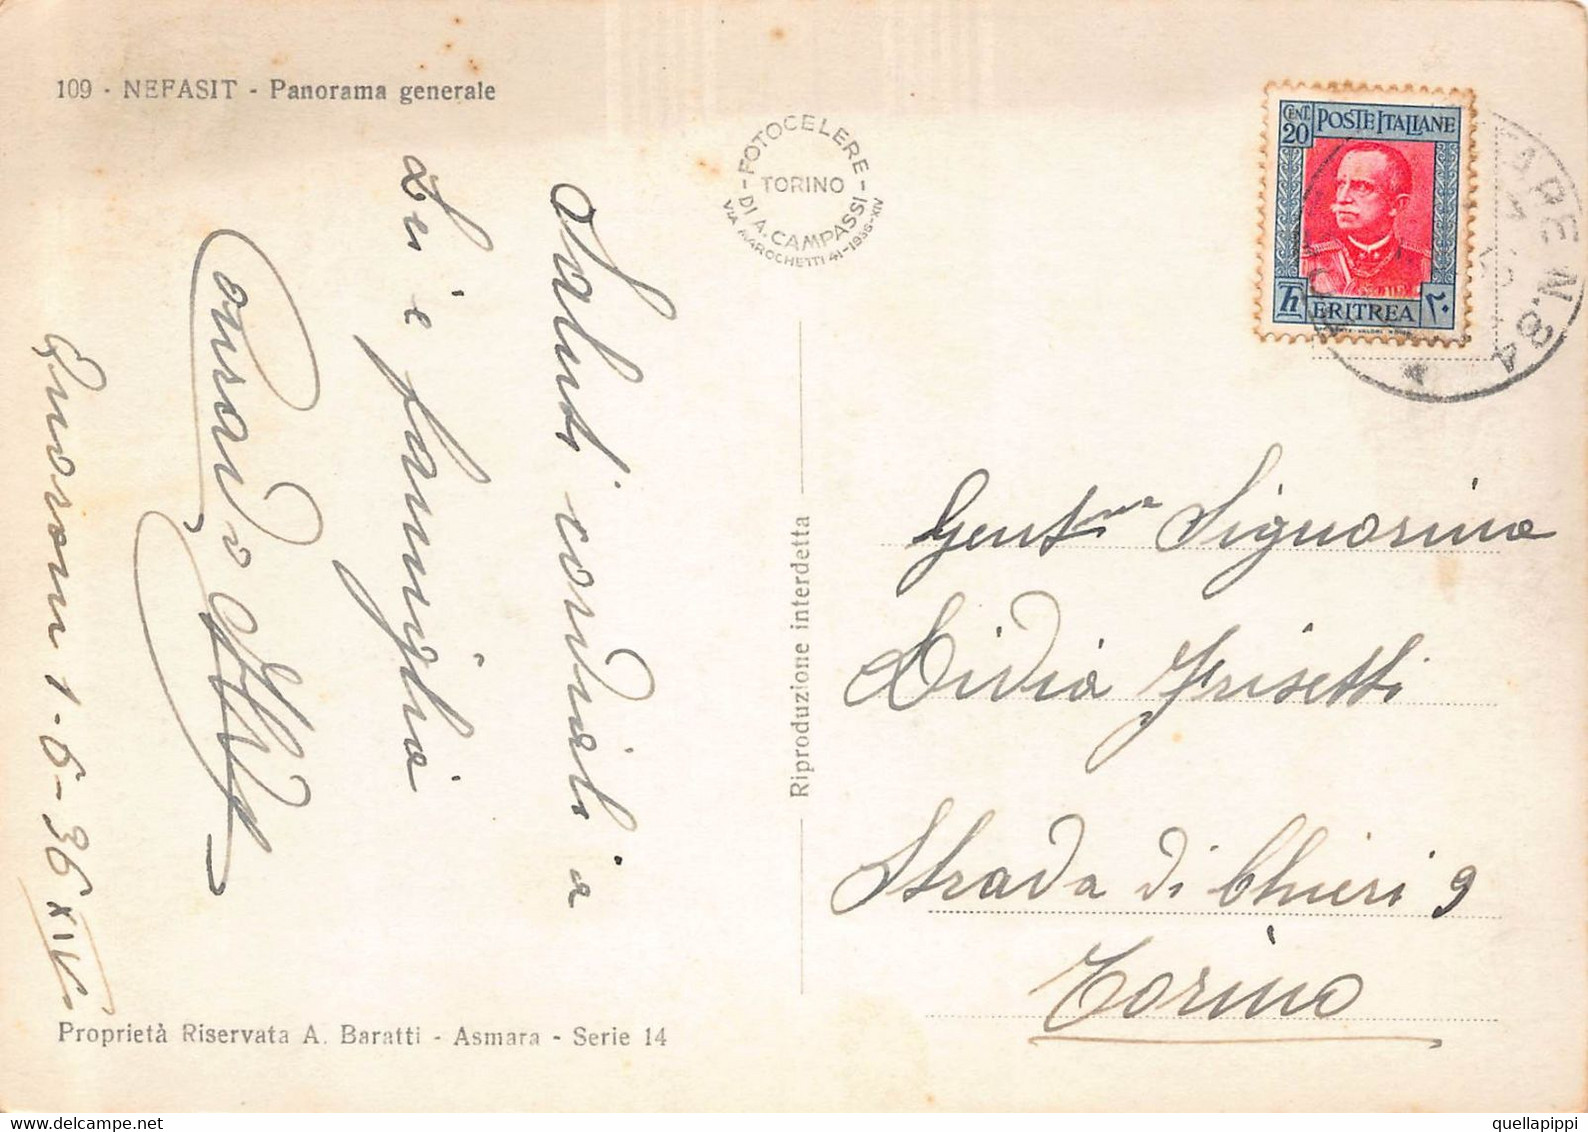 109 - NEFASIT - Panorama generale
FOTOCELERE
TORINO
DI A. CAMPASSI
VIA MAROCHETTI 41-1936-XIV
CENT. 20
POSTE ITALIANE
ERITREA
٢٠
N. 84
Saluti cordiali a
Lei e famiglia
Corrado
1-6-36 XIV
Riproduzione interdetta
Gent.ma Signorina
Lidia Grisetti
Strada di Chieri 9
Torino
Proprietà Riservata A. Baratti - Asmara - Serie 14
quellapippi